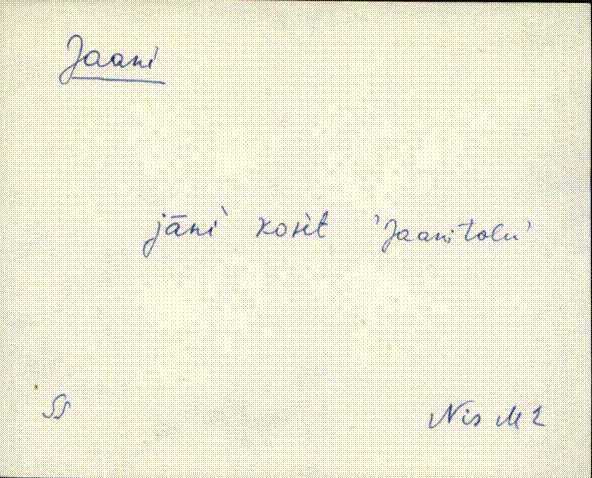 Jaani
jāni kosit 'Jaanitolu'
SS
Nis M2